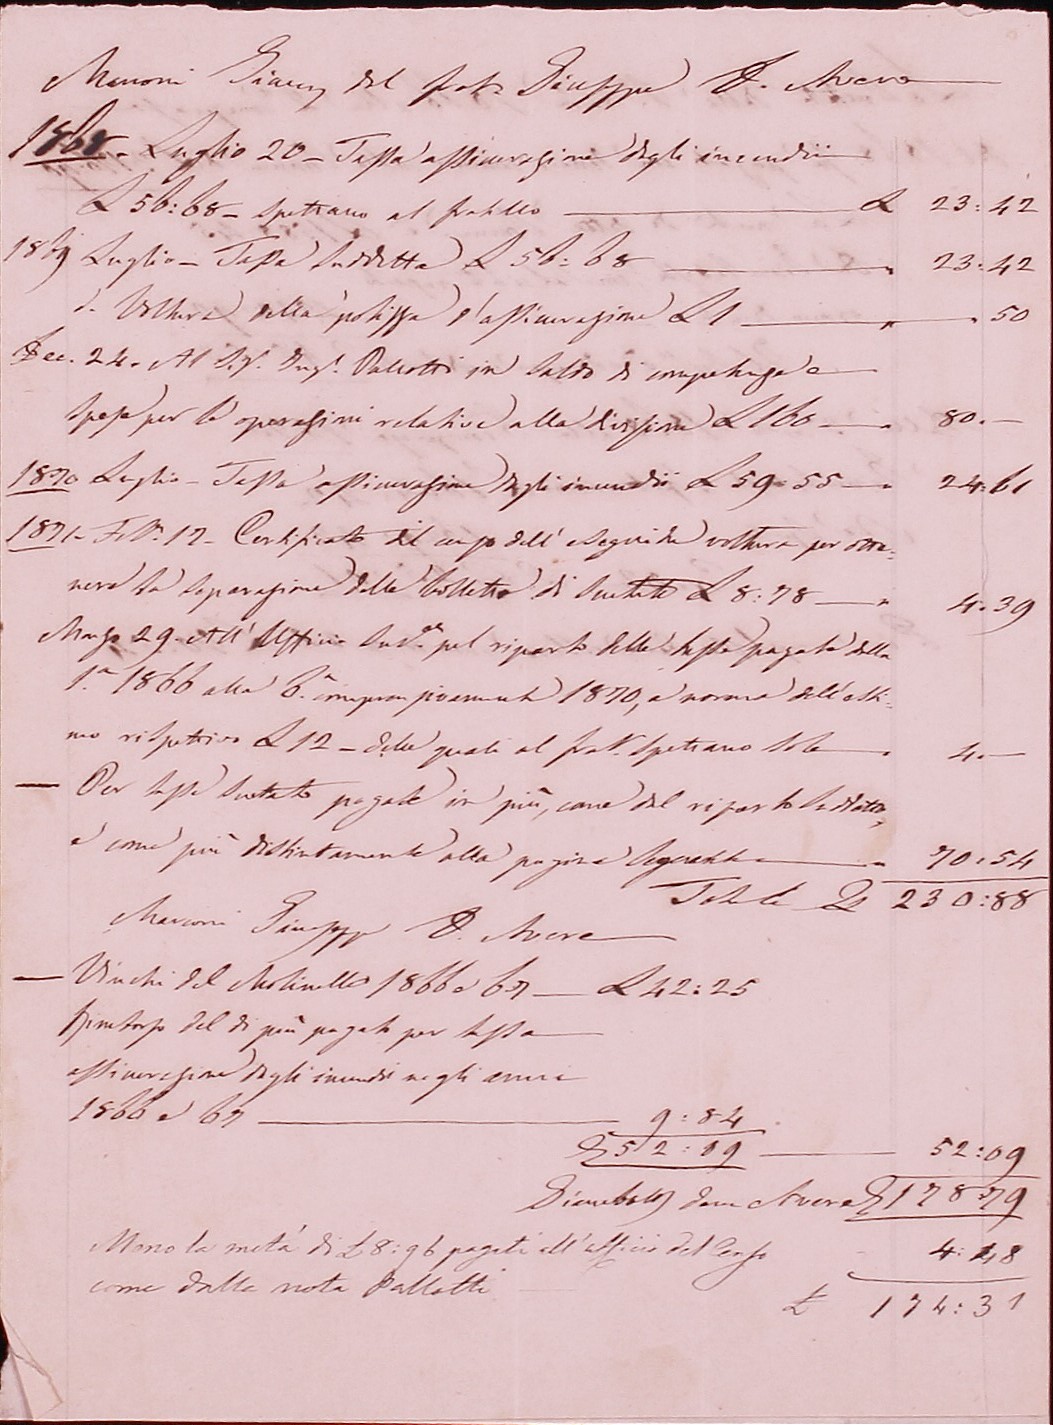 Marconi Giac. del frat. Giuseppe D. Avere
1868 - Luglio 20 - Tassa assicurazione degli incendii
£ 56:68 - spettano al fratello £ 23:42
1869 Luglio - Tassa suddetta £ 56:68 " 23:42
d. Voltura della polizza d'assicurazione £ 1 " . 50
Dec. 24. Al Sig. Ing. Pallotti in saldo di competenze e
spese per le operazioni relative alla divisione £ 160 " 80. -
1870 Luglio - Tassa assicurazione degli incendii £ 59:55 " 24:61
1871 Febb. 17 - Certificato del censo dell' eseguita voltura per otte-
nere la separazione delle bollette di £ 8:78 " 4.39
Marzo 29. All' Ufficio pel riparto delle tasse pagate dalla
1.a 1866 alla 6.a 1870, a norma dell' esti-
mo rispettivo £ 12 - delle quali al frat. spettano sole " 4. -
Per tasse pagate in più, come dal riparto suddetto,
e come più distintamente alla pagina seguente " 70.54
Totale £ 230:88
Marconi Giuseppe D. Avere
Vinchi del Molinello 1866 e 67 £ 42:25
Rimborso del di più pagato per tassa
assicurazione degli incendi negli anni
1866 e 67 9:84
£ 52:09 52:09
Giacobbe deve Avere £ 178:79
Meno la metà di £ 8:96 pagati all' ufficio del Censo 4:48
come dalla nota Pallotti
£ 174:31